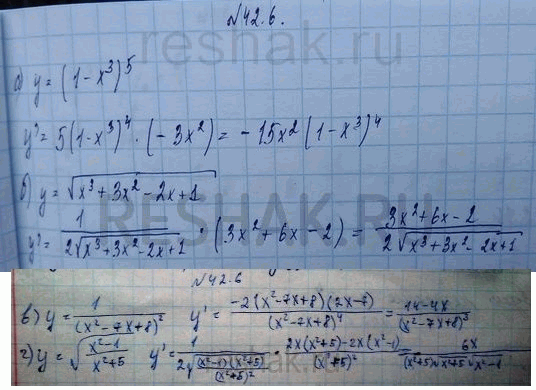 №42.6.
reshak.ru
а) y = (1-x³)⁵
y' = 5(1-x³)⁴ · (-3x²) = -15x²(1-x³)⁴
б) y = √(x³+3x²-2x+1)
RESHAK.RU
y' = 1/(2√(x³+3x²-2x+1)) · (3x²+6x-2) = (3x²+6x-2)/(2√(x³+3x²-2x+1))
№42.6
в) y = 1/(x²-7x+8)² y' = (-2(x²-7x+8)(2x-7))/(x²-7x+8)⁴ = (14-4x)/(x²-7x+8)³
г) y = √((x²-1)/(x²+5)) y' = 1/(2√((x²-1)(x²+5)/(x²+5)²)) · (2x(x²+5)-2x(x²-1))/(x²+5)² = 6x/((x²+5)√(x²+5)√(x²-1))